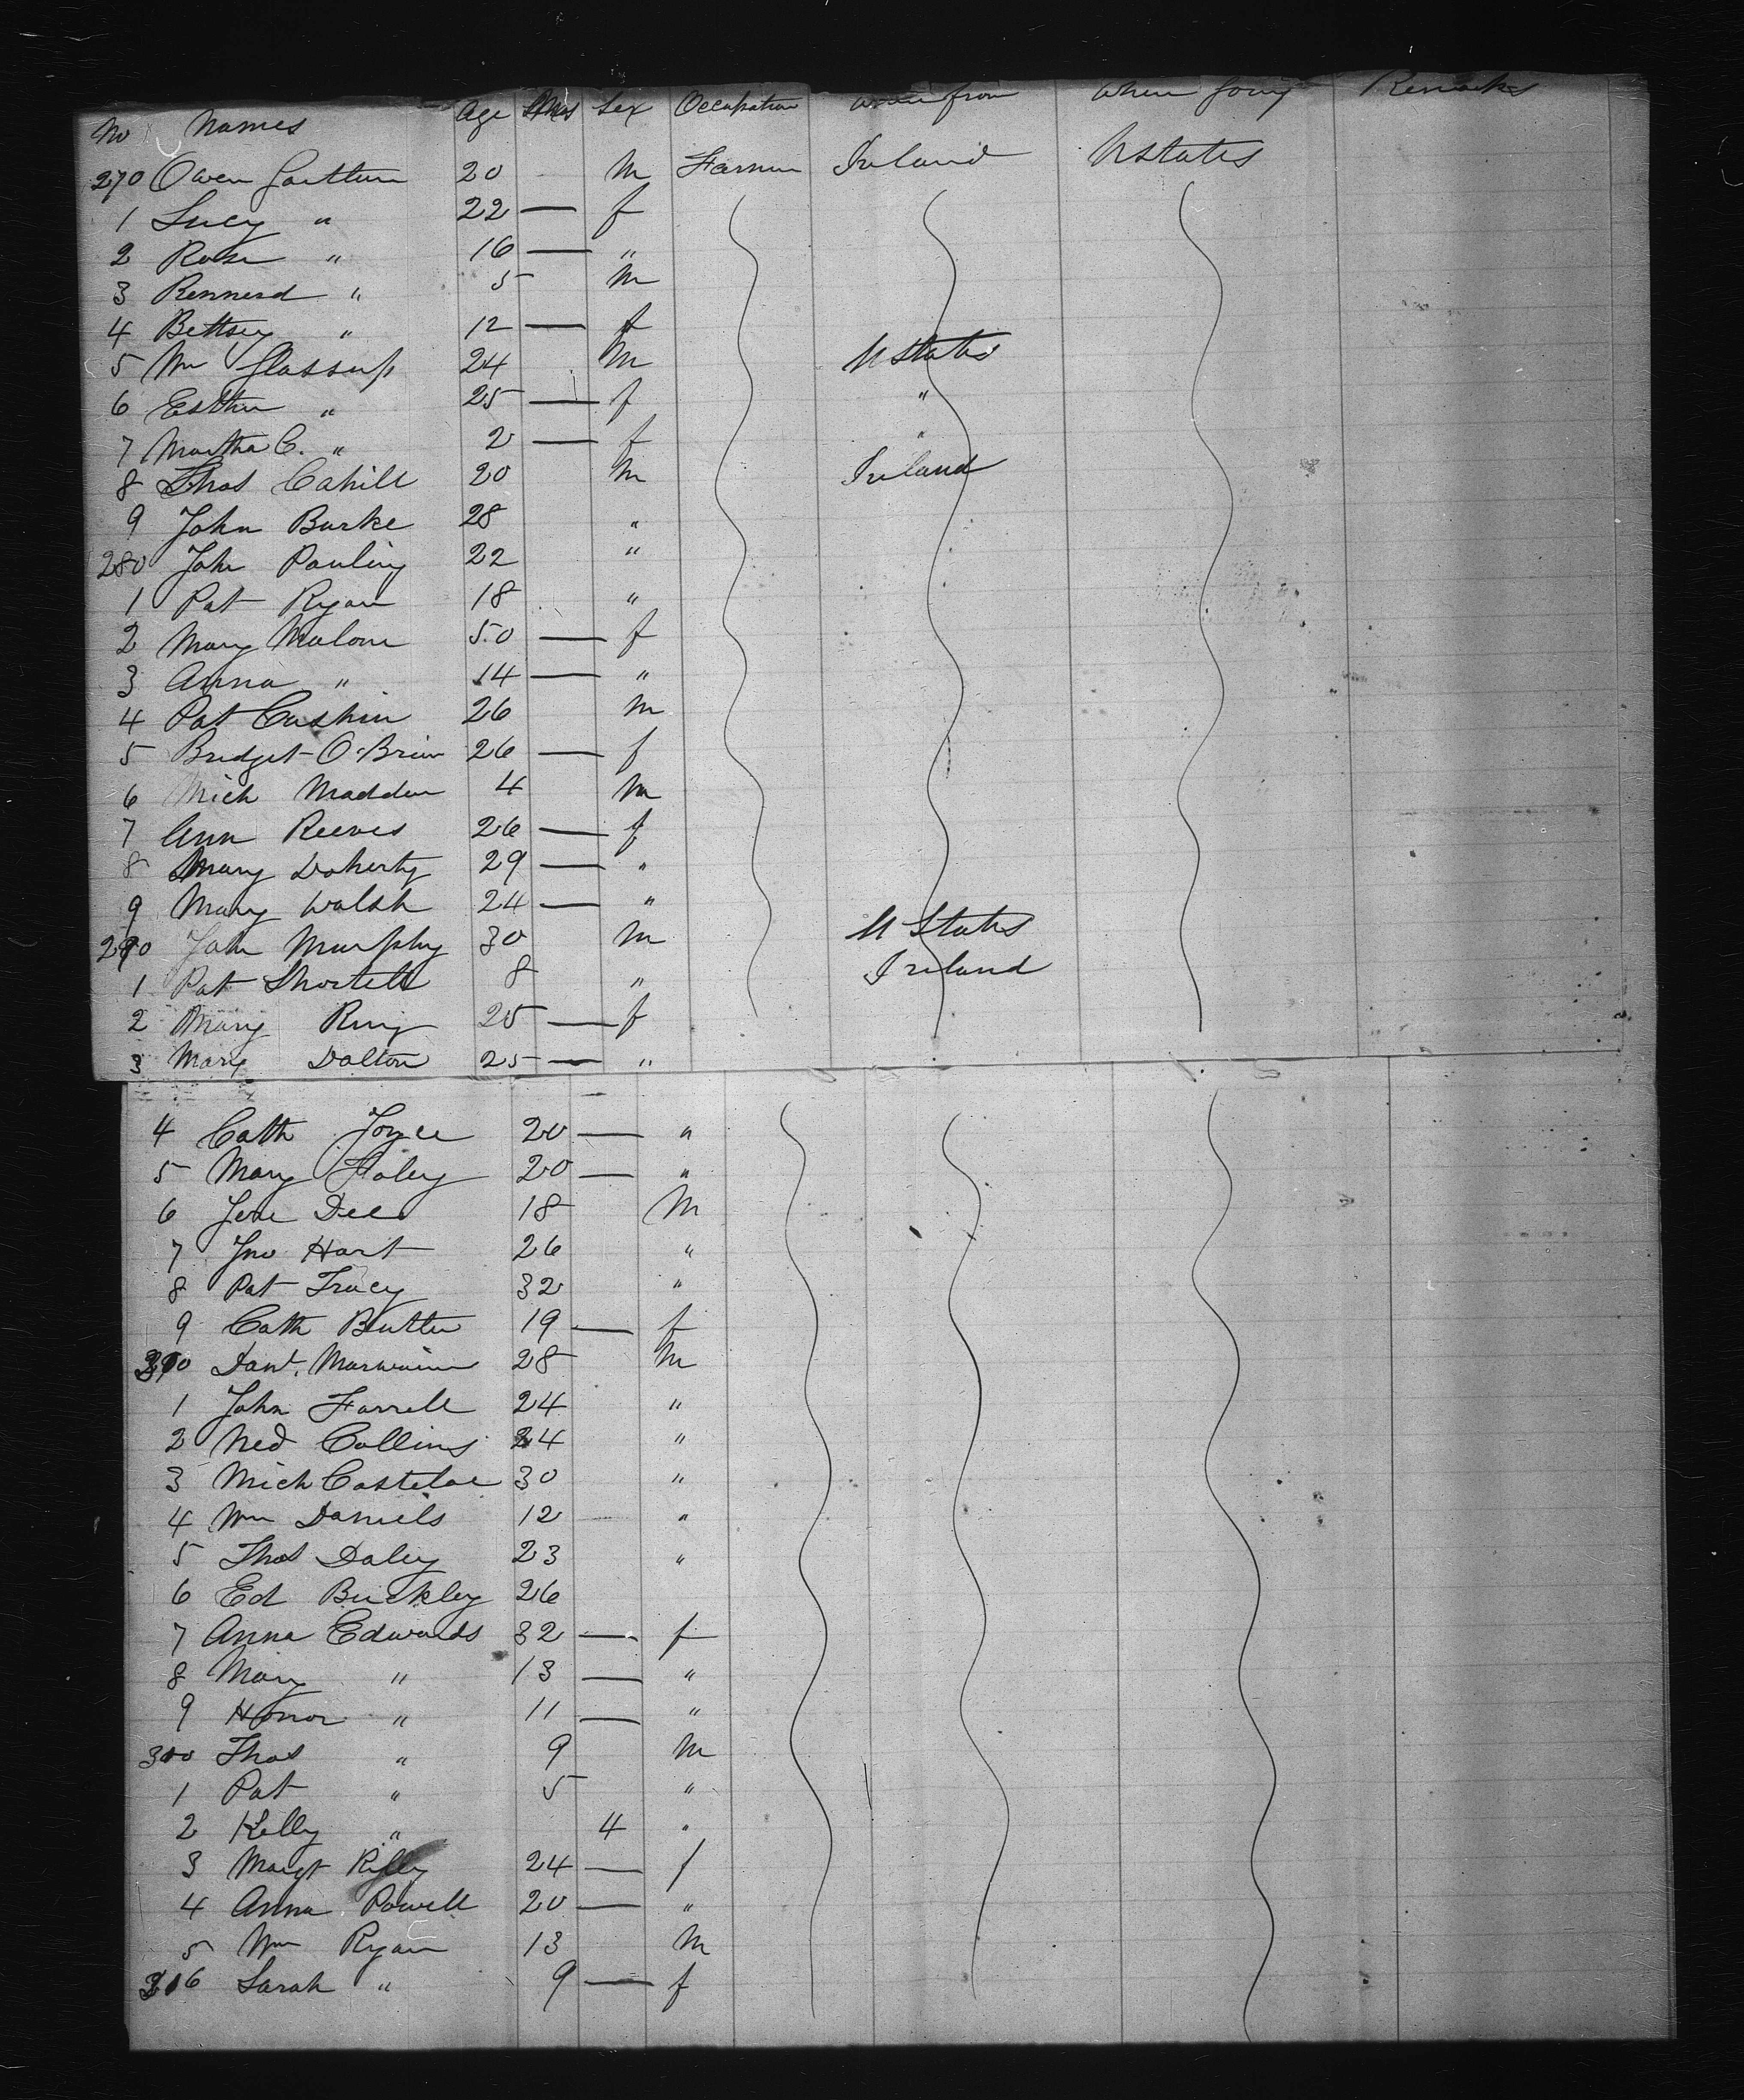 No Names Age Mos Sex Occupation Where from Where going Remarks
270 Owen 20 M Farmer Ireland U States
1 Lucy " 22 — f
2 Rose " 16 — "
3 Rennerd " 5 M
4 Bettsey " 12 — f
5 Wm Glassup 24 M U States
6 Esther " 25 — f "
7 Martha C. " 2 — f "
8 Thos Cahill 20 M Ireland
9 John Burke 28 "
280 John Pauling 22 "
1 Pat Ryan 18 "
2 Mary Malone 50 — f
3 Anna " 14 — "
4 Pat Cushin 26 M
5 Bridget O'Brien 26 — f
6 Mich Madden 4 M
7 Ann Reeves 26 — f
8 Mary Doherty 29 — "
9 Mary Walsh 24 — "
290 John Murphy 30 M U States
1 Pat Shortell 8 " Ireland
2 Mary Ring 25 — f
3 Mary Dalton 25 — "
4 Cath Joyce 20 — "
5 Mary Foley 20 — "
6 Jere Dee 18 M
7 Jno Hart 26 "
8 Pat Tracy 32 "
9 Cath Butler 19 — f
Danl. 28 M
1 John Farrell 24 "
2 Ned Collins 24 "
3 Mich Casteloe 30 "
4 Wm Daniels 12 "
5 Thos Daley 23 "
6 Ed Buckley 26
7 Anna Edwards 32 — f
8 Mary " 13 — "
9 Honor " 11 — "
Thos " 9 M
1 Pat " 5 "
2 Kelly " 4 "
3 Margt Rilly 24 — f
4 Anna Powell 20 — "
5 Wm Ryan 13 M
316 Sarah " 9 — f